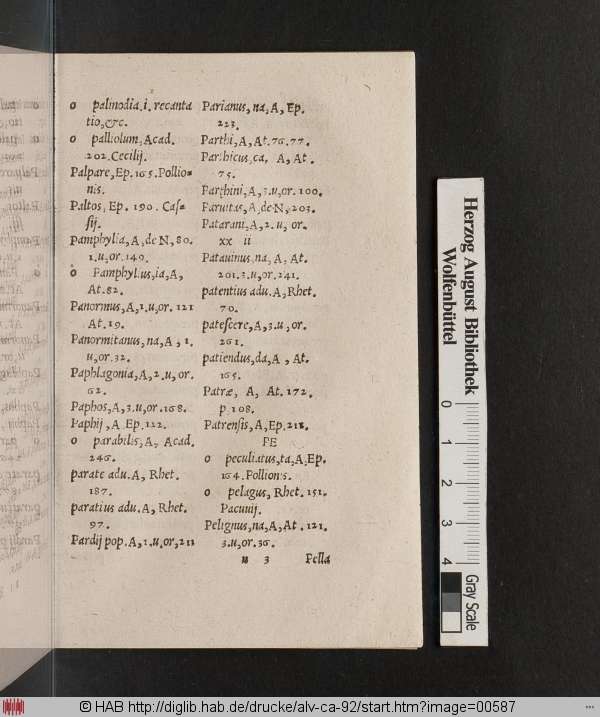 o palinodia.i. recanta
tio,&c.
o palliolum, Acad.
202.Cecilij.
Palpare, Ep.165.Pollio-
nis.
Paltos, Ep. 190. Caſ-
ſij.
Pamphylia, A, de N, 80.
1.u,or.149.
o Pamphylius,ia,A,
At.82.
Panormus,A,1.u,or. 121
At.19.
Panormitanus,na,A, 1.
u,or.32.
Paphlagonia,A,2.u, or.
62.
Paphos,A,3.u,or.168.
Paphij,A Ep.122.
o parabilis, A, Acad.
246.
parate adu.A, Rhet.
187.
paratius adu.A, Rhet.
97.
Pardij pop.A,1.u,or,212
Parianus,na,A, Ep.
223.
Parthi,A,At.76.77.
Parthicus,ca, A, At.
75.
Parthini,A,3.u,or.100.
Paruitas,A,de N,203.
Patarani,A,2.u, or.
xx ii
Patauinus,na,A, At.
201.3.u,or.241.
patentius adu.A,Rhet.
70.
pateſcere,A,3.u,or.
261.
patiendus,da,A, At.
165.
Patræ, A, At.172.
p.108.
Patrenſis,A,Ep.218.
PE
o peculiatus,ta,A,Ep.
164.Pollionis.
o pelagus, Rhet.151.
Pacuuij.
Pelignus,na,A,At.121.
3.u,or.36.
u 3 Pella
Herzog August Bibliothek
Wolfenbüttel
0 1 2 3 4
Gray Scale
© HAB http://diglib.hab.de/drucke/alv-ca-92/start.htm?image=00587